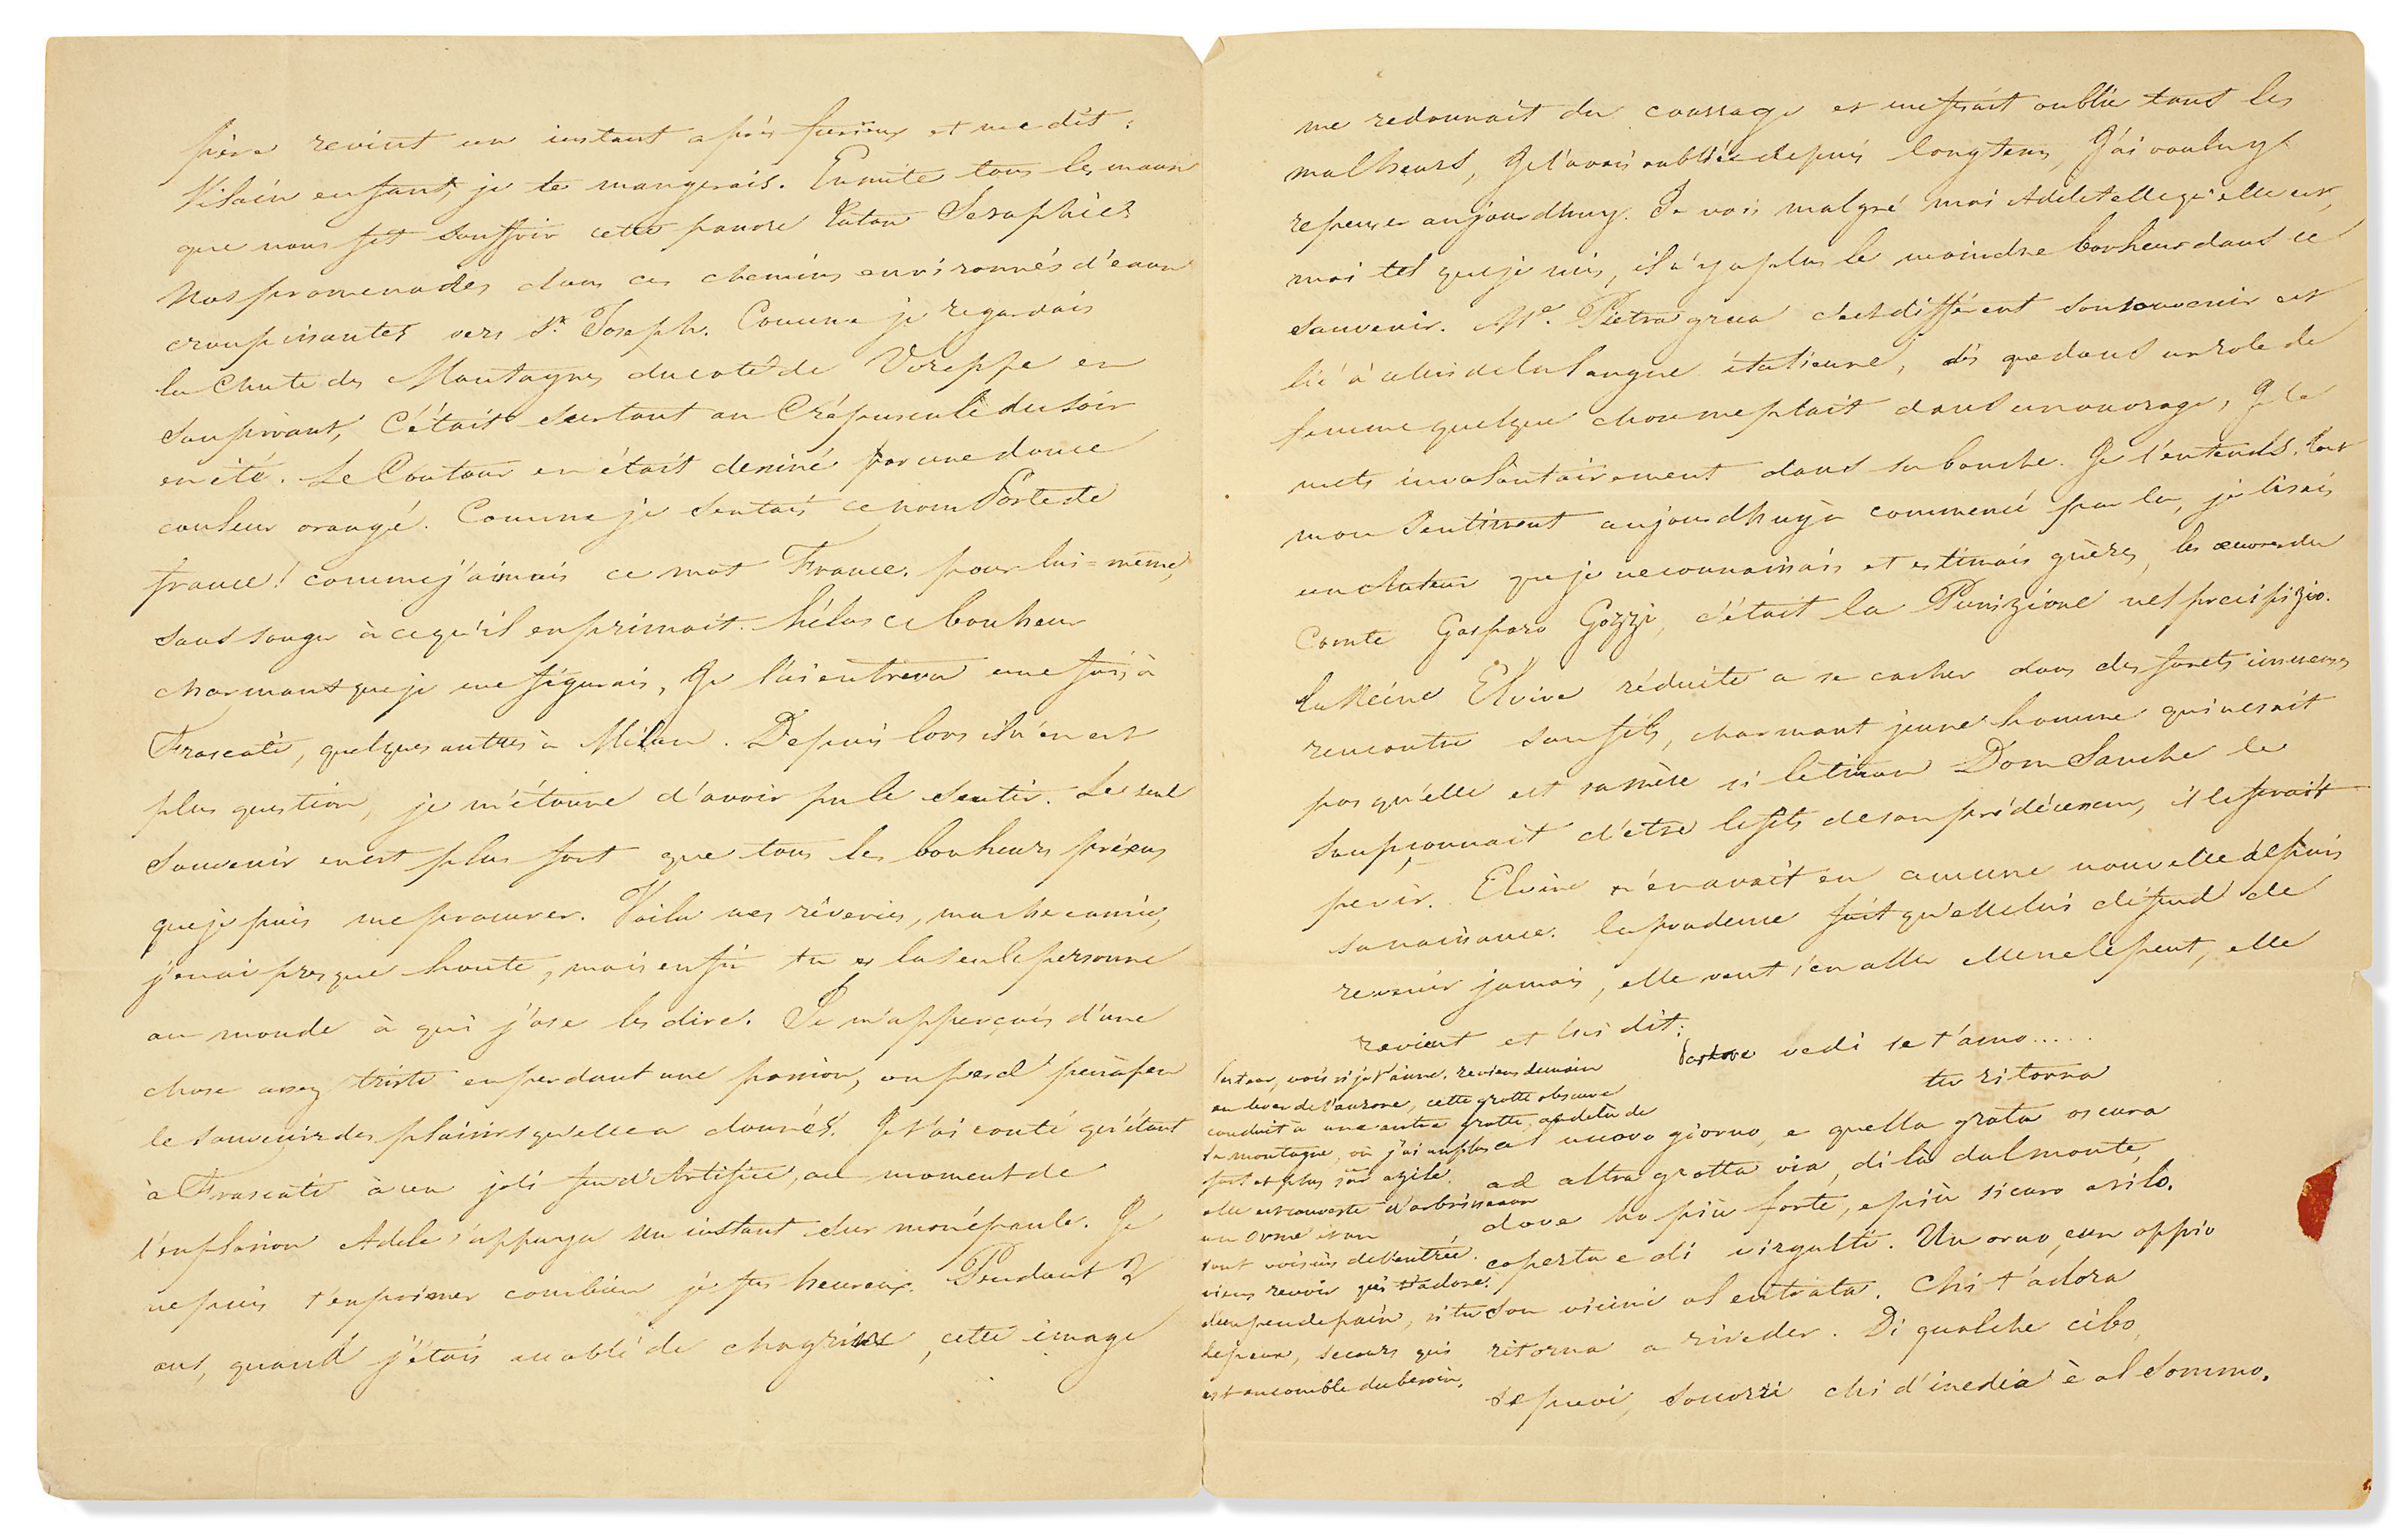 père revint un instant après furieux et me dit:
Vilain enfant, je te mangerais. Ensuite tous les maux
que nous fit souffrir cette pauvre Tatan Seraphie
Nos promenades dans ces chemins environnés d'eaux
croupissantes vers St. Joseph. Comme je regardais
la chute des Montagnes du coté de Voreppe en
soupirant, C'était surtout au Crépuscule du soir
en été. Le Contour en était dessiné par une douce
couleur orangé. Comme je sentais ce nom Porte de
france! comme j'aimais ce mot France. pour lui-même,
sans songer à ce qu'il exprimait. hélas ce bonheur
charmant que je me figurais, Je l'ai entrevu une fois à
Frascati, quelques autres à Milan. Depuis lors il n'en est
plus question, je m'étonne d'avoir pu le sentir. Le seul
souvenir en est plus fort que tous les bonheurs présens
que je puis me procurer. Voila mes rêveries, ma chere amie,
j'en ai presque honte, mais enfin tu es la seule personne
au monde à qui j'ose les dire. Je m'apperçois d'une
chose assez triste en perdant une passion, on perd peu à peu
le souvenir des plaisirs qu'elle a donnés. Je t'ai conté qu'étant
à Frascati à un joli feu d'Artifice, au moment de
l'explosion Adele s'appuya un instant sur mon épaule. Je
ne puis t'exprimer combien je fus heureux. Pendant 2
ans, quand j'étais accablé de chagrins, cette image
me redonnait du courrage et me fesait oublier tous les
malheurs, Je l'avais oubliée depuis longtems, J'ai voulu y
repenser aujourdhuy. Je vois malgré moi Adele telle qu'elle est,
moi tel que je suis, il n'y a plus le moindre bonheur dans ce
souvenir. Me. Pietragrua c'est différent son souvenir est
lié à celui de la langue italienne, dès que dans un role de
femme quelque chose me plait dans un ouvrage, Je le
mets involontairement dans sa bouche. Je l'entends. tout
mon sentiment aujourdhuy a commencé par la, je lisais
un auteur que je ne connaissais et estimais guères, les œuvres du
Comte Gasparo Gozzi, c'était la Punizione nel precipizio.
La Reine Elvire réduite a se cacher dans des forets immenses
rencontre son fils, charmant jeune homme qui ne sait
pas qu'elle est sa mère si le tiran Dom Sanche le
soupçonnait d'etre le fils de son prédécesseur, il le ferait
perir. Elvire n'en avait eu aucune nouvelle depuis
sa naissance. la prudence fait qu'elle lui défend de
revenir jamais, elle veut s'en aller elle ne le peut, elle
revient et lui dit:
Pastore vedi se t'amo.....
tu ritorna
al nuovo giorno, e quella grata oscura
ad altra grotta via, di là dal monte,
dove ho più forte, e più sicuro asilo.
coperta e di virgulti. Un orno, e un oppio
son vicini al entrata. Chi t'adora
ritorna a riveder. Di qualche cibo,
se puoi, soccorri chi d'inedia è al sommo.
Pasteur, vois si je t'aime. reviens demain
au lever de l'aurore, cette grotte obscure
conduit à une autre grotte, au dela de
la montagne, où j'ai un plus
fort et plus sûr azile.
elle est couverte d'arbrisseaux
un orme et un
sont voisins de l'entrée.
viens revoir qui t'adore.
d'un peu de pain, si tu
le peux, secours qui
est au comble du besoin.